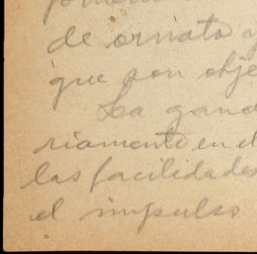 de ornato y
que son obje
La gana
riamente en el
las facilidades
el impulso